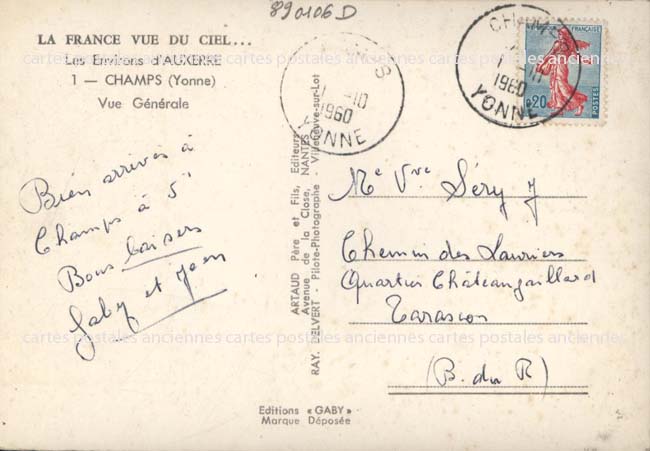 890106D
LA FRANCE VUE DU CIEL...
Les Environs d'AUXERRE
1 — CHAMPS (Yonne)
Vue Générale
Bien arrivés à
Champs à 5
Bons baisers
Gaby et Jean
ARTAUD Père et Fils, Editeurs
Avenue de la Close, NANTES
RAY. DELVERT - Pilote-Photographe - Villeneuve-sur-Lot
1960
YONNE
CHAMPS
1960
YONNE
FRANÇAISE
0,20
POSTES
Me Vve Séry J
Chemin des Lauriers
Quartier Châteaugaillard
Tarascon
(B. du R)
cartes postales anciennes cartes postales anciennes cartes postales anciennes
cartes postales anciennes cartes postales anciennes cartes postales anciennes
Editions « GABY »
Marque Déposée